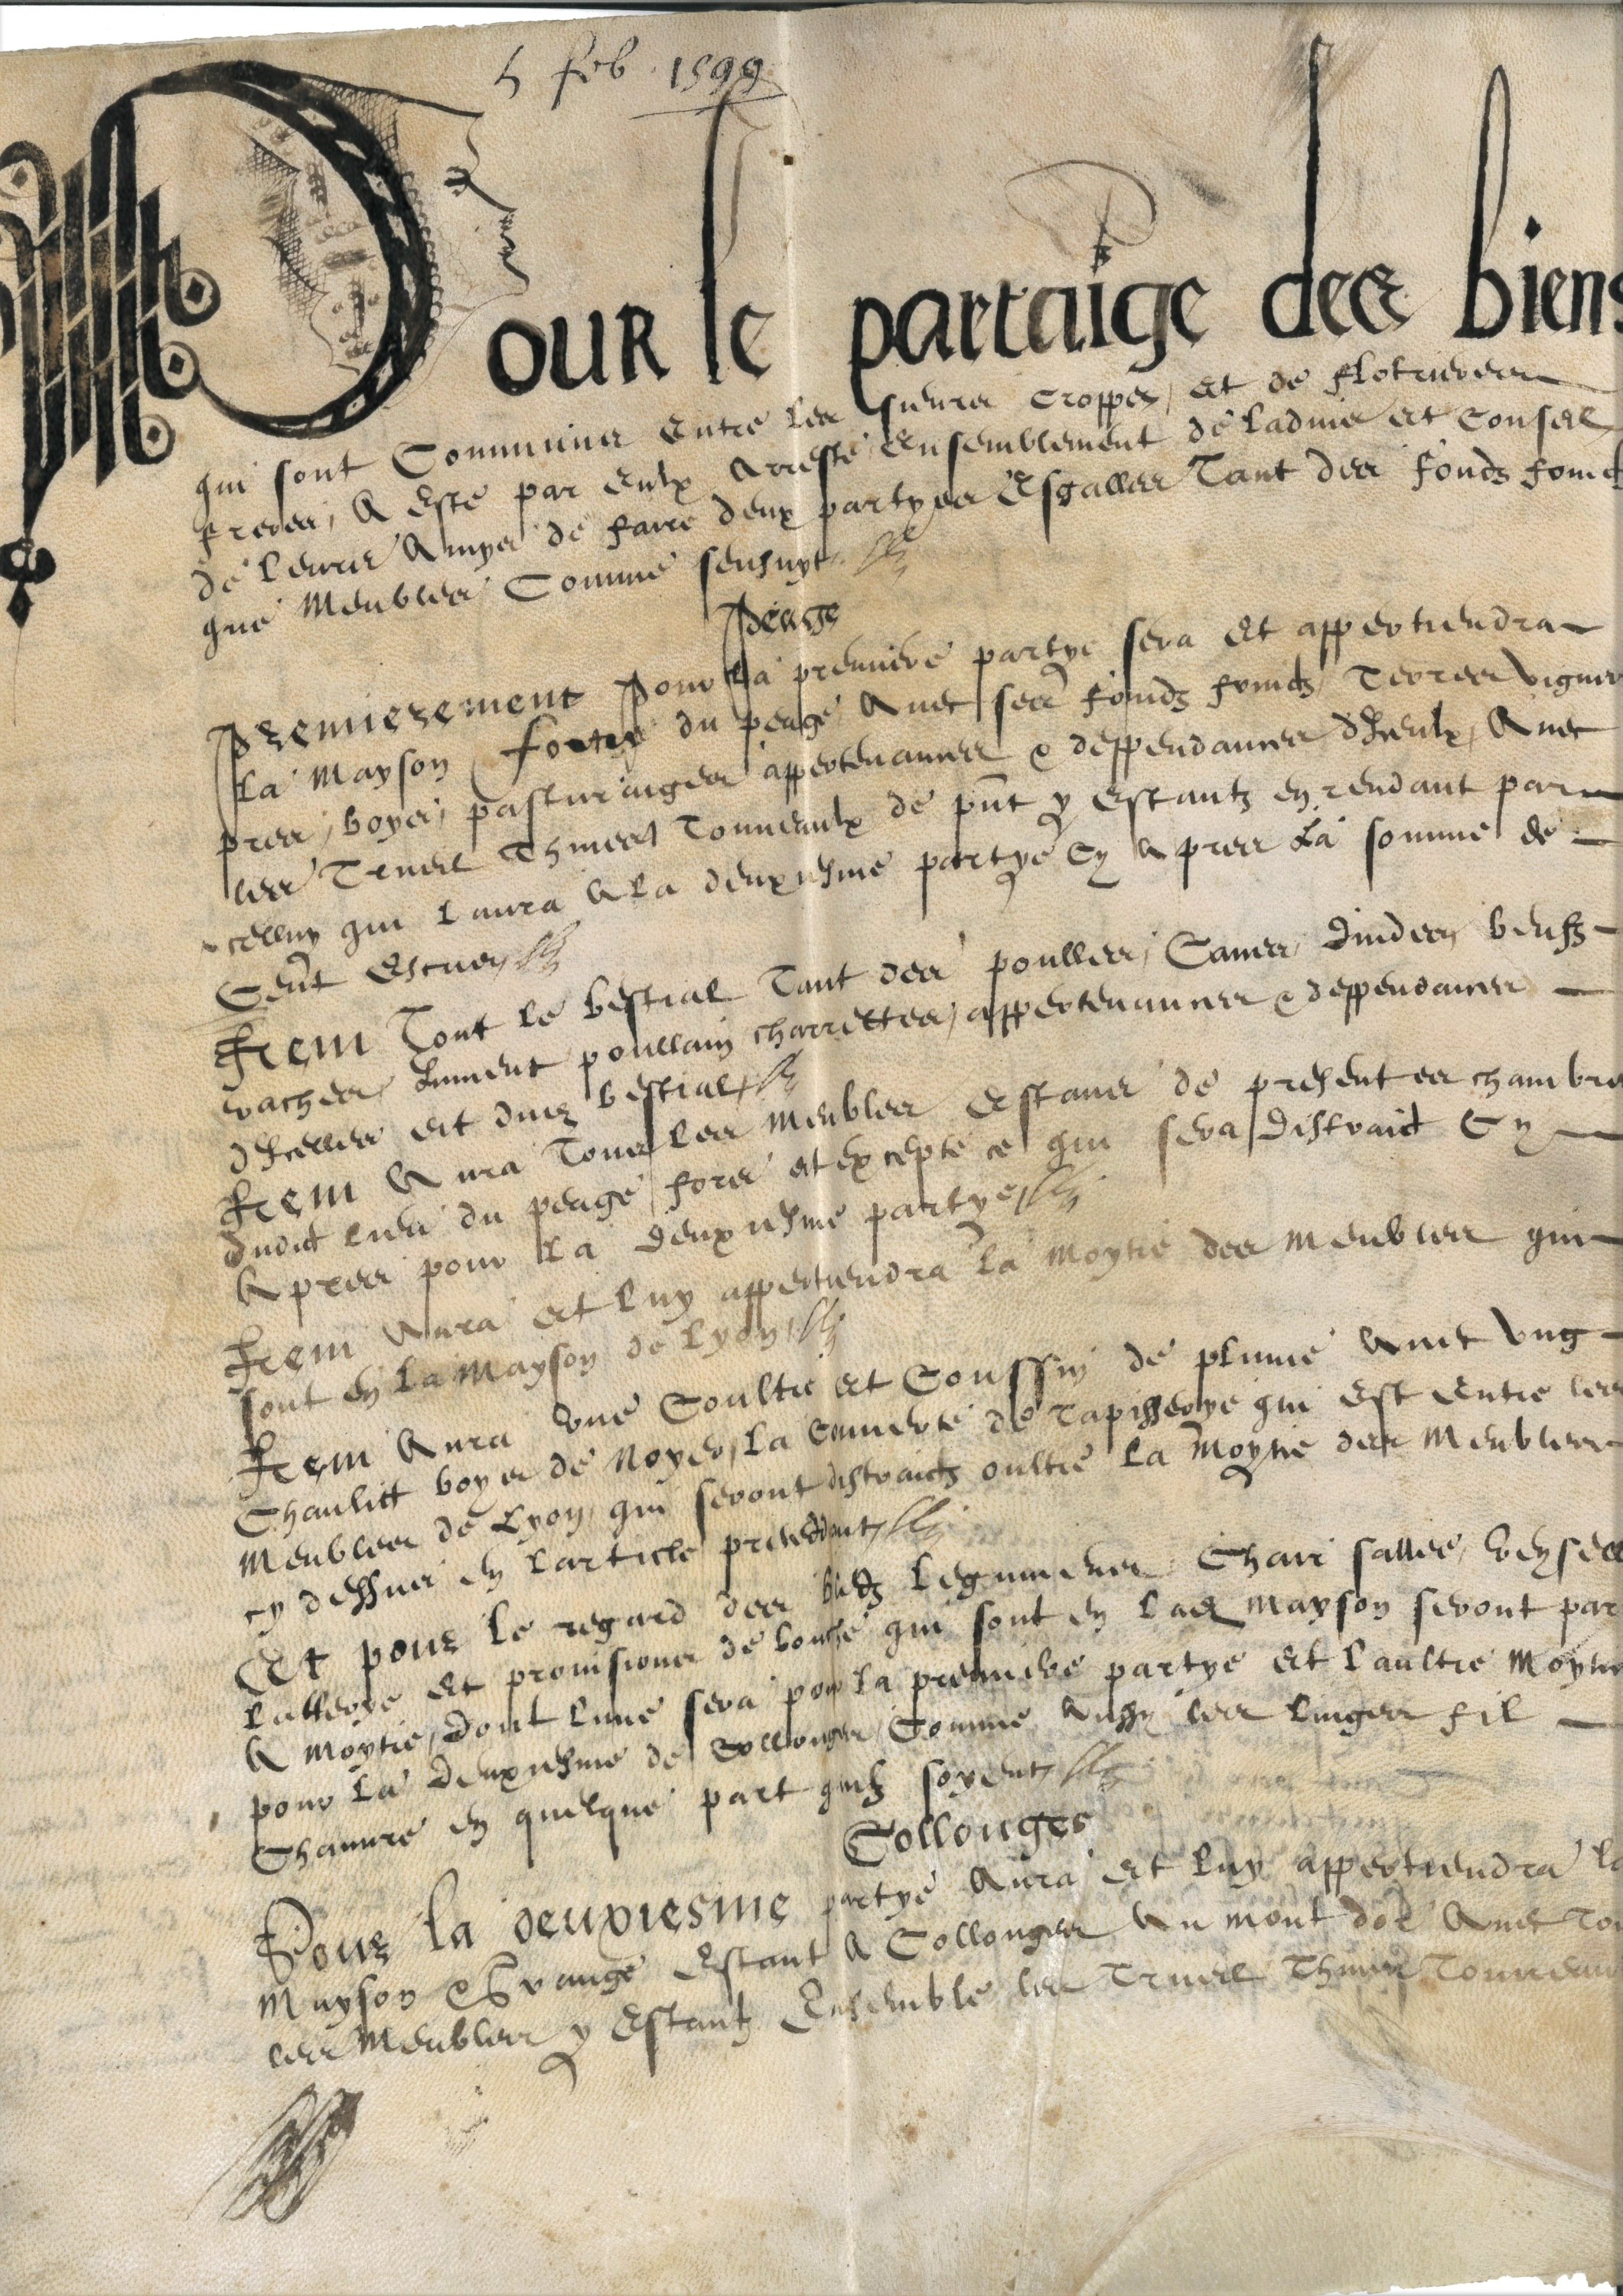 5 feb 1599
Pour le partaige des biens
qui sont Communs entre les sieurs Cropper et de
freres, A esté par eulx Arresté ensemblement de ladvis et Conseil
de leurs Amyes de faire deux partyes Esgalles Tant des fonds
que Meubles Comme sensuyt
Peage
Premierement Pour la premiere partye sera et appertiendra
La Mayson forte du peage Avec ses fonds Terres vignes
pres, boyes, pasturaiges appertenances & deppendances diceulx, Avec
les Trueil Thines Tonneaulx de pnt y estantz en rendant par
celluy qui Laura A la deuxiesme partye Cy Apres La somme de
Cent Escus
Item Tout le bestial Tant des poulles, Canes, dindes, beufz
vaches, Jument poullain charrettes, appertenances & deppendances
dicelles et dud bestial
Item Aura Tous les Meubles Estans de present es chambres
dudict lieu du peage fors et excepté ce qui sera distraict Cy
Apres pour la deuxiesme partye
Item Aura et luy appertiendra la Moytie des Meubles qui
sont en la Mayson de Lyon
Item Aura Une Coultre et Coussin de plume Avec Ung
Chaulict boyes de Noyer, La Couverte de Tapisserye qui est Entre les
Meubles de Lyon, qui seront distraictz oultre La Moytie des Meubles
cy dessus en Larticle precedent
Et pour le regard des bledz Legumenes Chair sallee,
et provisions de bouche qui sont en Lad Mayson seront par
A Moytie, dont Lune sera pour La premiere partye et Laultre Moytie
pour La deuxiesme de Collonges, Comme Aussy les linges fil
Chanvre en quelque part quilz soyent
Collonges
Pour la deuxiesme partye Aura et Luy appertiendra la
Mayson & Grange Estant A Collonges Au Mont dor Avec
les Meubles y Estantz Ensemble les Trueil Thines Tonneau